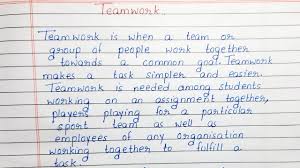 Teamwork.
Teamwork is when a team or
group of people work together
towards a common goal. Teamwork
makes a task simpler and easier.
Teamwork is needed among students
working on an assignment together,
players playing for a particular
sport team as well as
employees of any organisation
working together to fulfill a
task.